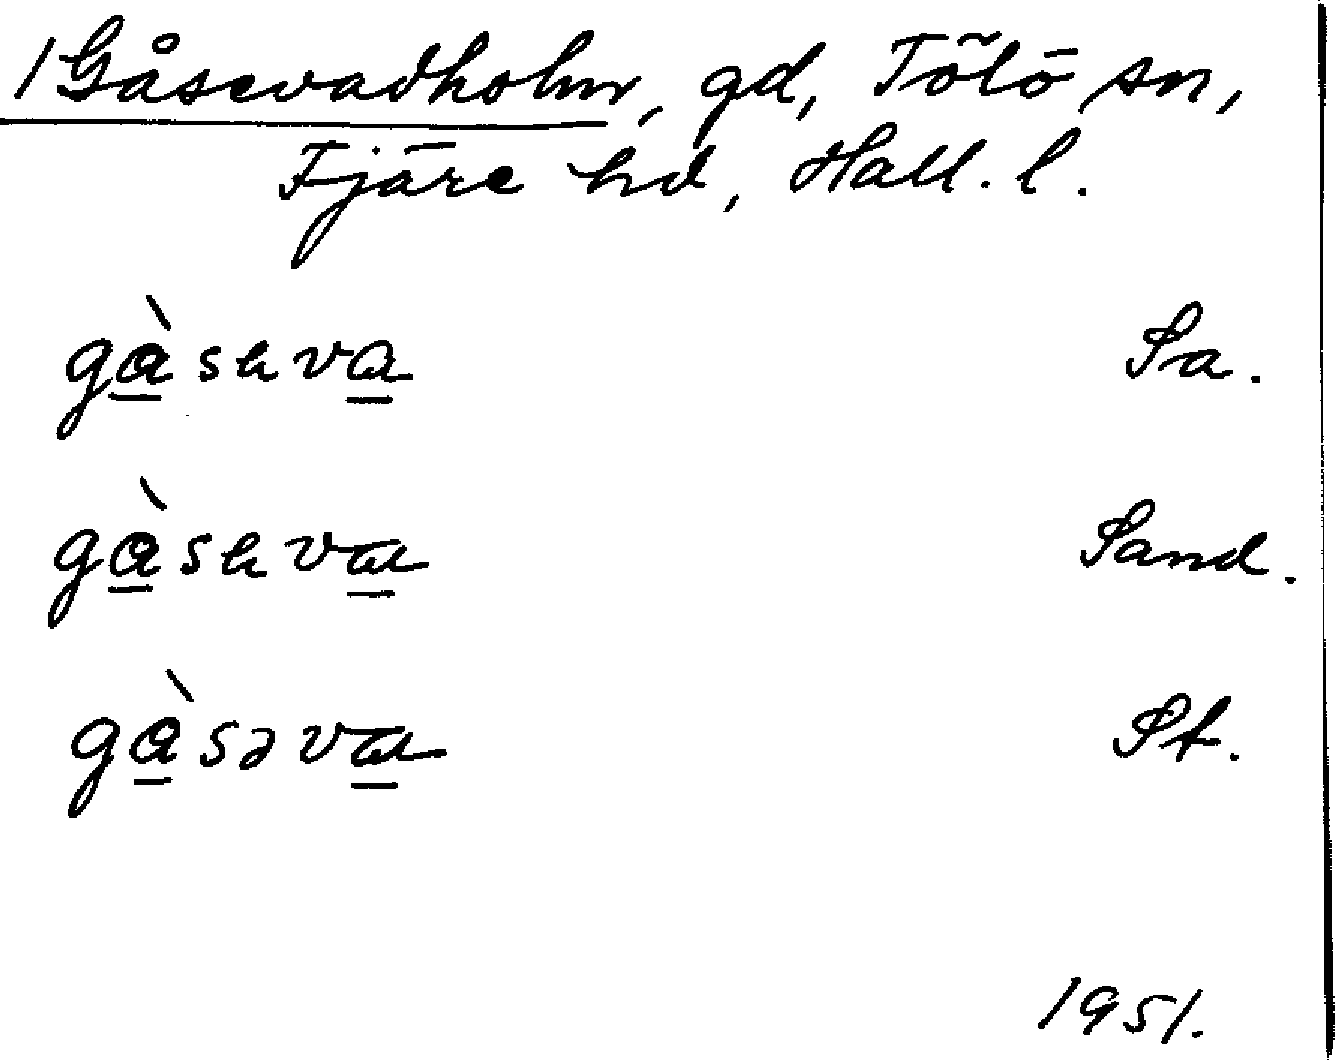 /Gåsevadholm, gd, Tölö sn,
Fjäre hd, Hall. l.
gàsava Sa.
gàsava Sand.
gàsəva St.
1951.